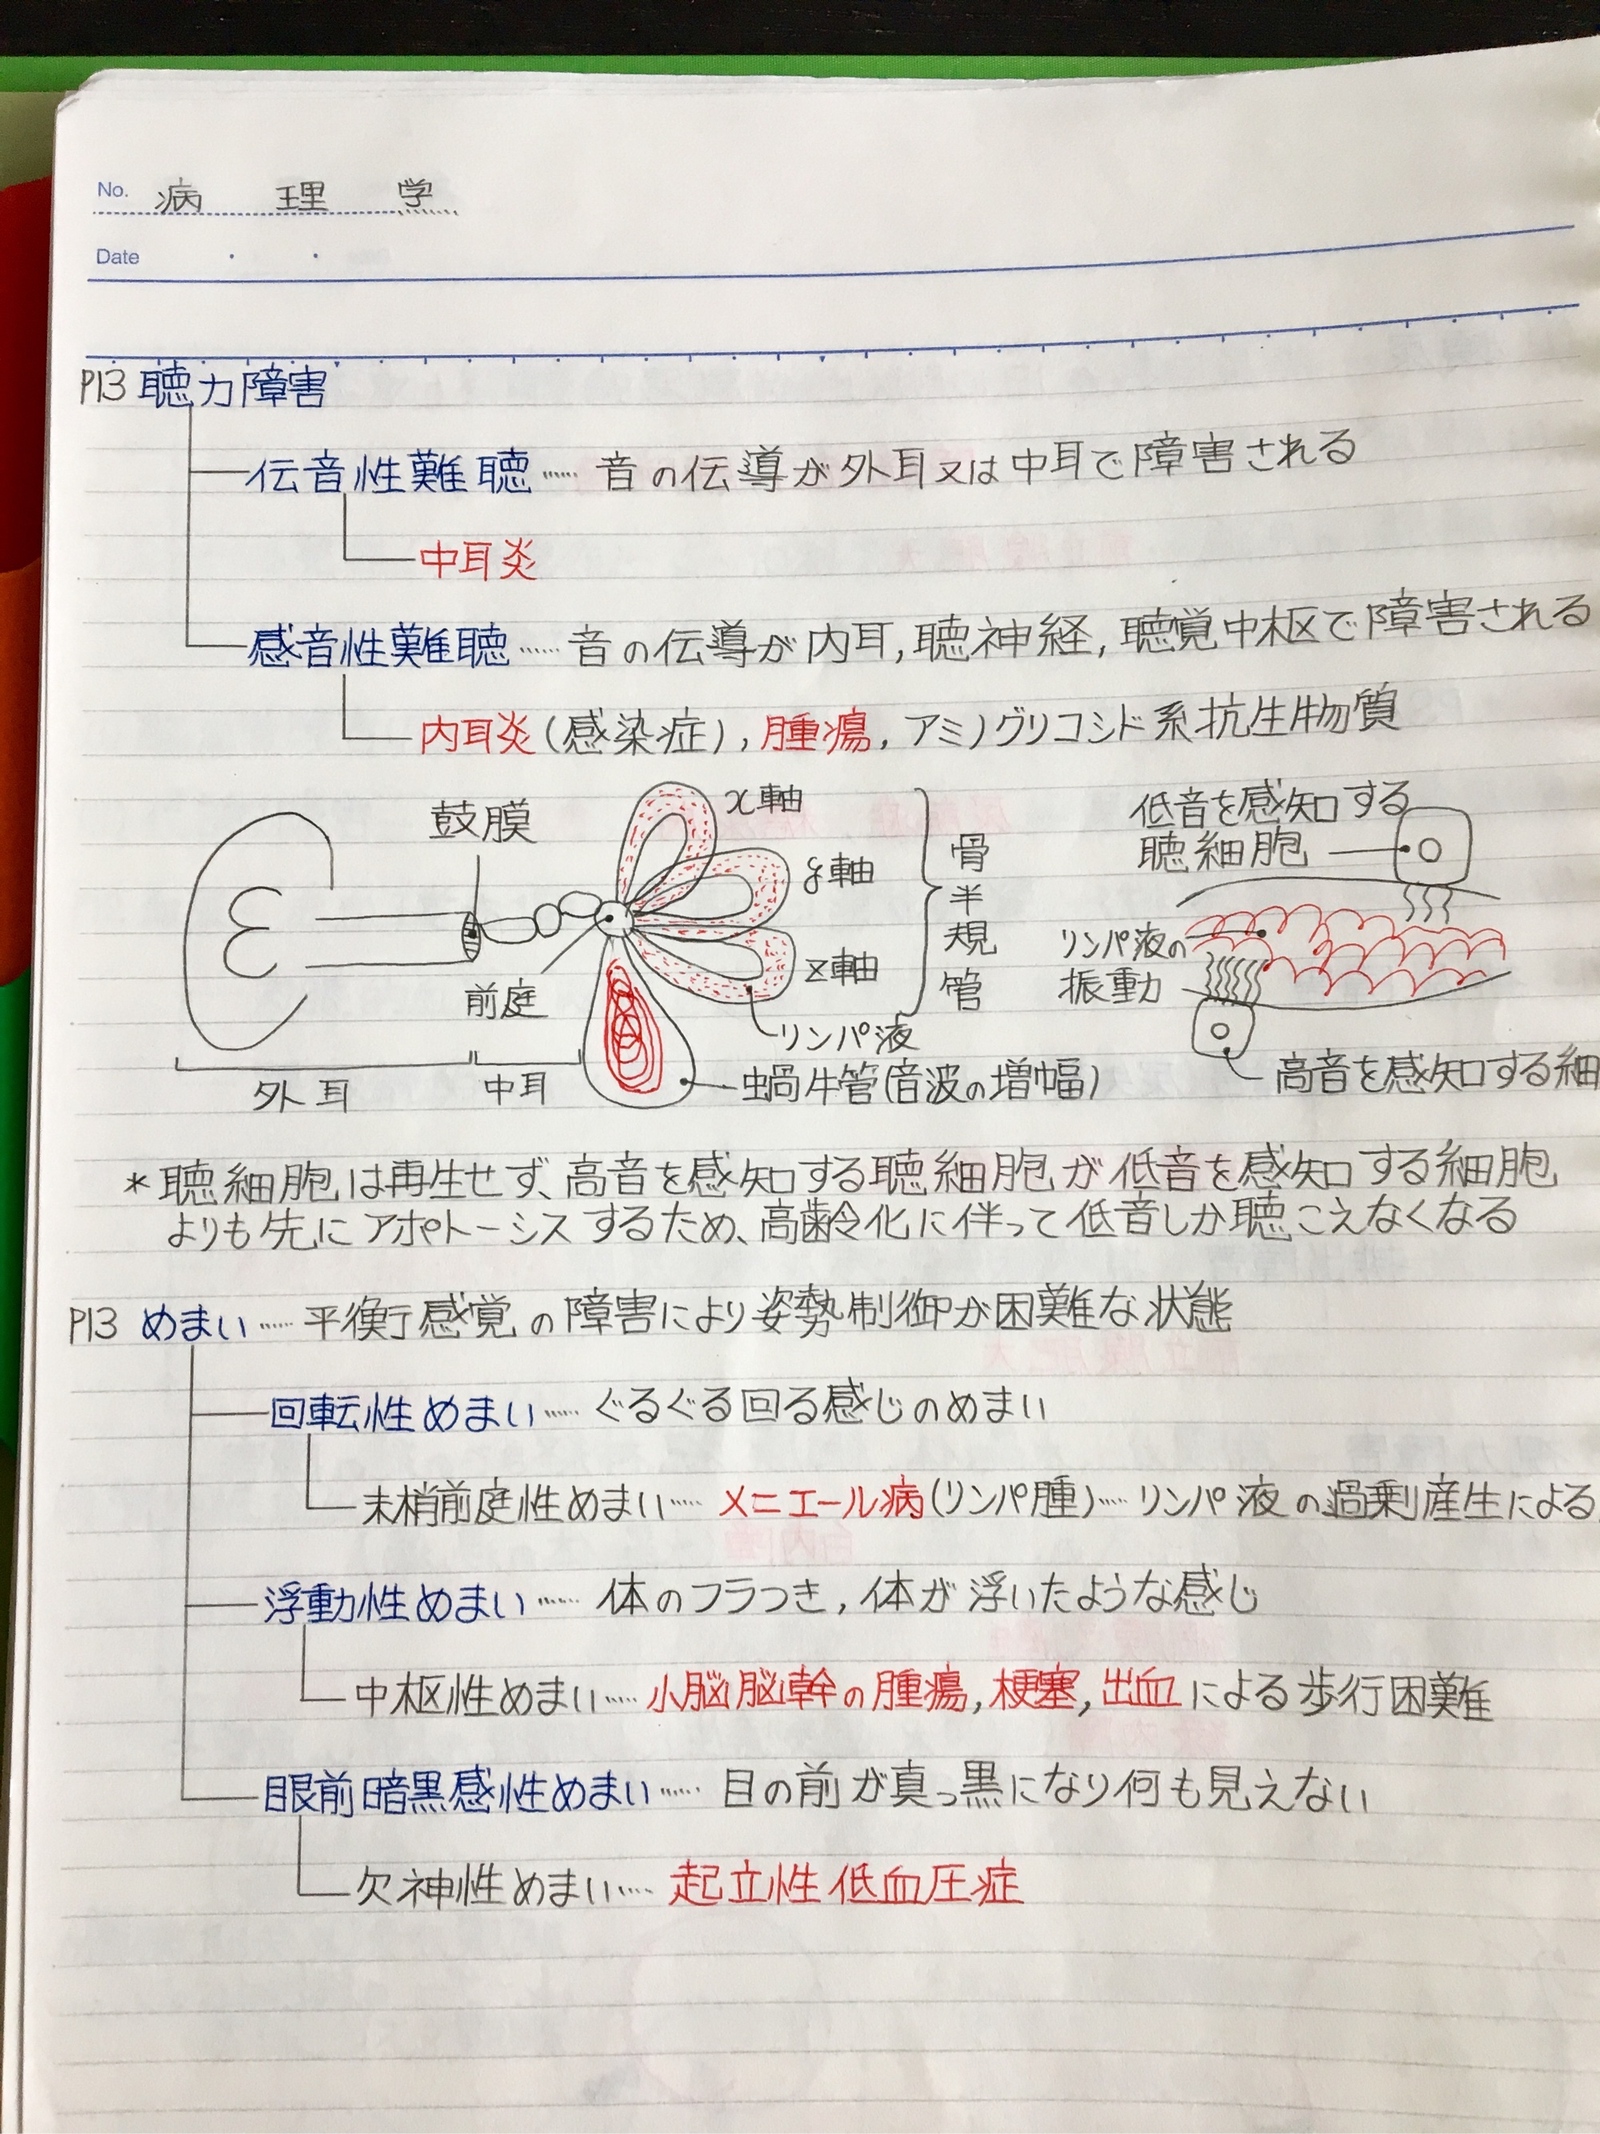 No. 病 理 学
Date
P13 聴力障害
伝音性難聴…… 音の伝導が外耳又は中耳で障害される
中耳炎
感音性難聴…… 音の伝導が内耳,聴神経,聴覚中枢で障害される
内耳炎(感染症),腫瘍,アミノグリコシド系抗生物質
鼓膜
x軸
y軸
z軸
骨半規管
前庭
リンパ液
蝸牛管(音波の増幅)
外耳
中耳
低音を感知する
聴細胞
リンパ液の
振動
高音を感知する細
*聴細胞は再生せず、高音を感知する聴細胞が低音を感知する細胞
よりも先にアポトーシスするため、高齢化に伴って低音しか聴こえなくなる
P13 めまい…… 平衡感覚の障害により姿勢制御が困難な状態
回転性めまい…… ぐるぐる回る感じのめまい
末梢前庭性めまい…… メニエール病(リンパ腫)…… リンパ液の過剰産生による
浮動性めまい…… 体のフラつき,体が浮いたような感じ
中枢性めまい…… 小脳脳幹の腫瘍,梗塞,出血による歩行困難
眼前暗黒感性めまい…… 目の前が真っ黒になり何も見えない
欠神性めまい…… 起立性低血圧症